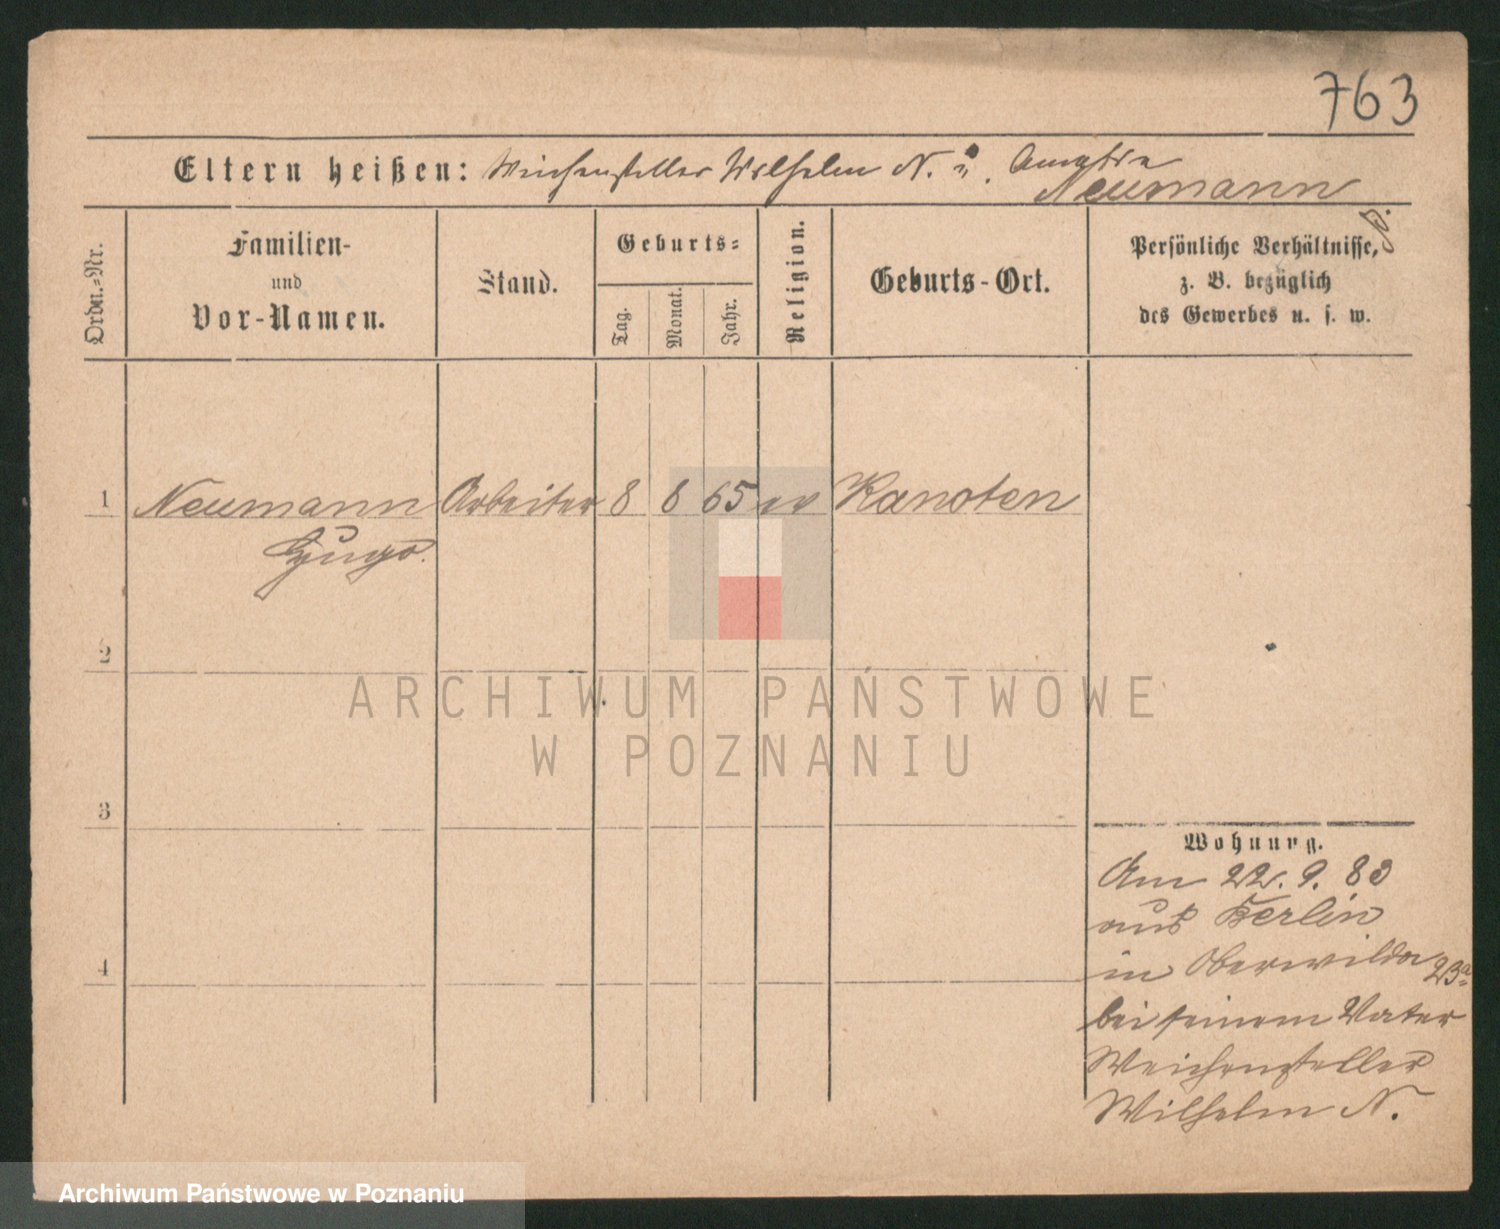 763
Eltern heißen: Weichensteller Wilhelm N. u.
Neumann
Ordn.-Nr.
Familien-
und
Vor-Namen.
Stand.
Geburts-
Tag.
Monat.
Jahr.
Religion.
Geburts-Ort.
Persönliche Verhältnisse,
z. B. bezüglich
des Gewerbes u. s. w.
1 Neumann Arbeiter 8 8 65 ev Kanoten
Hugo.
2
3
4
Wohnung.
Am 22. 9. 83
aus Berlin
in Oberwilda 23a
bei seinem Vater
Weichensteller
Wilhelm N.
ARCHIWUM PAŃSTWOWE
W POZNANIU
Archiwum Państwowe w Poznaniu